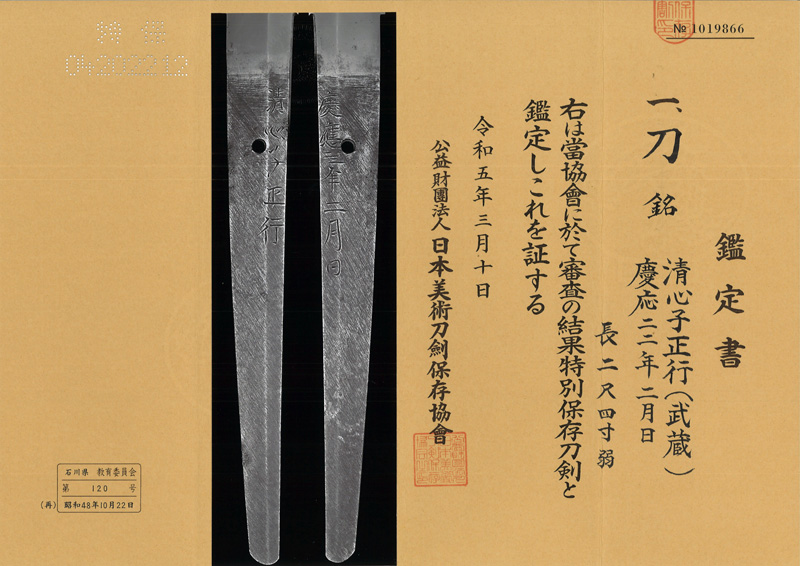 № 1019866
鑑定書
一、刀 銘 清心子正行(武蔵)
慶応二二年二月日
長二尺四寸弱
右は當協會に於て審査の結果特別保存刀剣と
鑑定しこれを証する
令和五年三月十日
公益財團法人 日本美術刀劍保存協會
慶應三年二月日
清心子正行
04202212
石川県 教育委員会
第 120 号
(再) 昭和48年10月22日